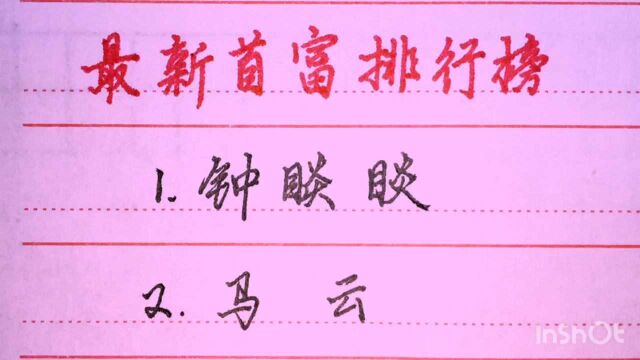 最新首富排行榜
1. 钟睒睒
2. 马云
InShOt